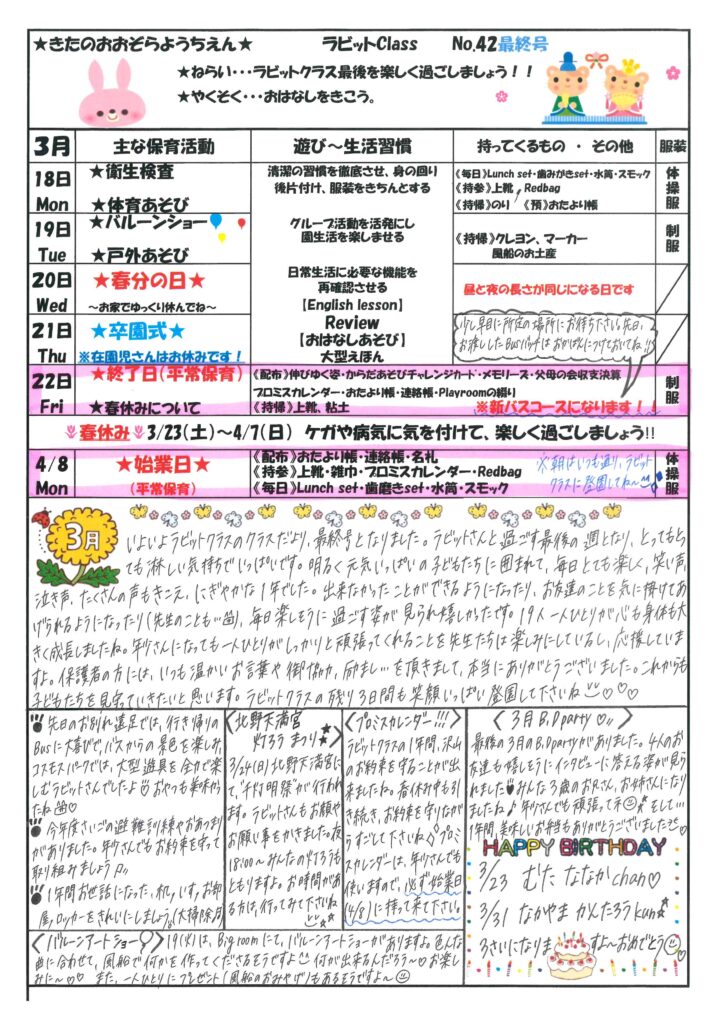 ★きたのおおぞらようちえん★ ラビットClass No.42最終号
★ねらい・・・ラビットクラス最後を楽しく過ごしましょう!!
★やくそく・・・おはなしをきこう。
3月 主な保育活動 遊び~生活習慣 持ってくるもの ・ その他 服装
18日 Mon
★衛生検査
★体育あそび
清潔の習慣を徹底させ、身の回り
後片付け、服装をきちんとする
《毎日》Lunch set・歯みがきset・水筒・スモック
《持参》上靴、Redbag
《持帰》のり 《預》おたより帳
体操服
19日 Tue
★バルーンショー
★戸外あそび
グループ活動を活発にし
園生活を楽しませる
《持帰》クレヨン、マーカー
風船のお土産
制服
20日 Wed
★春分の日★
~お家でゆっくり休んでね~
日常生活に必要な機能を
再確認させる
【English lesson】
Review
【おはなしあそび】
大型えほん
昼と夜の長さが同じになる日です
21日 Thu
★卒園式★
※在園児さんはお休みです!
少し早目に所定の場所にお待ち下さい。先日、
お渡ししたBusバッチは
22日 Fri
★終了日(平常保育)
★春休みについて
《配布》伸びゆく姿・からだあそびチャレンジカード・メモリーズ・父母の会収支決算
プロミスカレンダー・おたより帳・連絡帳・Playroomの綴り
《持帰》上靴、粘土 ※新バスコースになります!!
制服
春休み 3/23(土)~4/7(日) ケガや病気に気を付けて、楽しく過ごしましょう!!
4/8 Mon
★始業日★
(平常保育)
《配布》おたより帳・連絡帳・名札
《持参》上靴・雑巾・プロミスカレンダー・Redbag
《毎日》Lunch set・歯磨きset・水筒・スモック
※朝はいつも通り、ラビット
クラスに登園してね~
体操服
3月
いよいよラビットクラスのクラスだより、最終号となりました。ラビットさんと過ごす最後の週となり、とってもと
ても淋しい気持ちでいっぱいです。明るく元気いっぱいの子どもたちに囲まれて、毎日とても楽しく、笑い声、
泣き声、たくさんの声もきこえ、にぎやかな1年でした。出来なかったことができるようになったり、お友達のことを気に掛けてあ
げられるようになったり(先生のことも…)、毎日楽しそうに過ごす姿が見られ嬉しかったです。19人一人ひとりが心も身体も大
きく成長しましたね。年少さんになっても一人ひとりがしっかりと頑張ってくれることを先生たちは楽しみにしているし、応援していま
すよ。保護者の方には、いつも温かいお言葉や御協力、励まし…を頂きまして、本当にありがとうございました。これからも
子どもたちを見守っていきたいと思います。ラビットクラスの残り3日間も笑顔いっぱい登園して下さいね♡♡♡
先日のお別れ遠足では、行き帰りの
Busに大喜びで、バスからの景色を楽しみ、
コスモスパークでは、大型遊具を全力で楽
しむラビットさんでしたよ おやつも美味かっ
たね
今年度さいごの避難訓練やおあつまり
がありました。年少さんでもお約束を守って
取り組みましょう♪
1年間お世話になった、机、いす、お部
屋、ロッカーをきれいにしましょう。(大掃除)
<北野天満宮
灯ろうまつり★
3/24(日)北野天満宮に
て、"千灯明祭"が行われ
ます。ラビットさんもお願や
お願い事をかきました。夜
18:00~みんなの灯ろうも
ともりますよ。お時間があ
る方は、行ってみて下さいね
<プロミスカレンダー!!!>
ラビットクラスの1年間、沢山
のお約束を守ることが出
来ましたね。春休み中も引
き続き、お約束を守りなが
らすごして下さいね プロミ
スカレンダーは、年少さんでも
使いますので、必ず始業日
(4/8)に持って来て下さい。
<3月B.D party♡>
最後の3月のB.D partyがありました。4人のお
友達も嬉しそうにインタビューに答える姿が見
られました みんな3歳のお兄さん、お姉さんになり
ましたね♪年少さんでも頑張ってネ そして…
1年間、美味しいお弁当もありがとうございました
HAPPY BIRTHDAY
3/23 むた ななかchan♡
3/31 なかやま かんたろうkun★
3さいになりますよ~おめでとう
<バルーンアートショー> 19(火)は、Big roomにて、バルーンアートショーがありますよ。色んな
曲に合わせて、風船で何かを作ってくださるそうですよ 何が出来るんだろう~♡お楽し
みに~♡ また、一人ひとりにプレゼント(風船のおみやげ)もあるそうですよ~